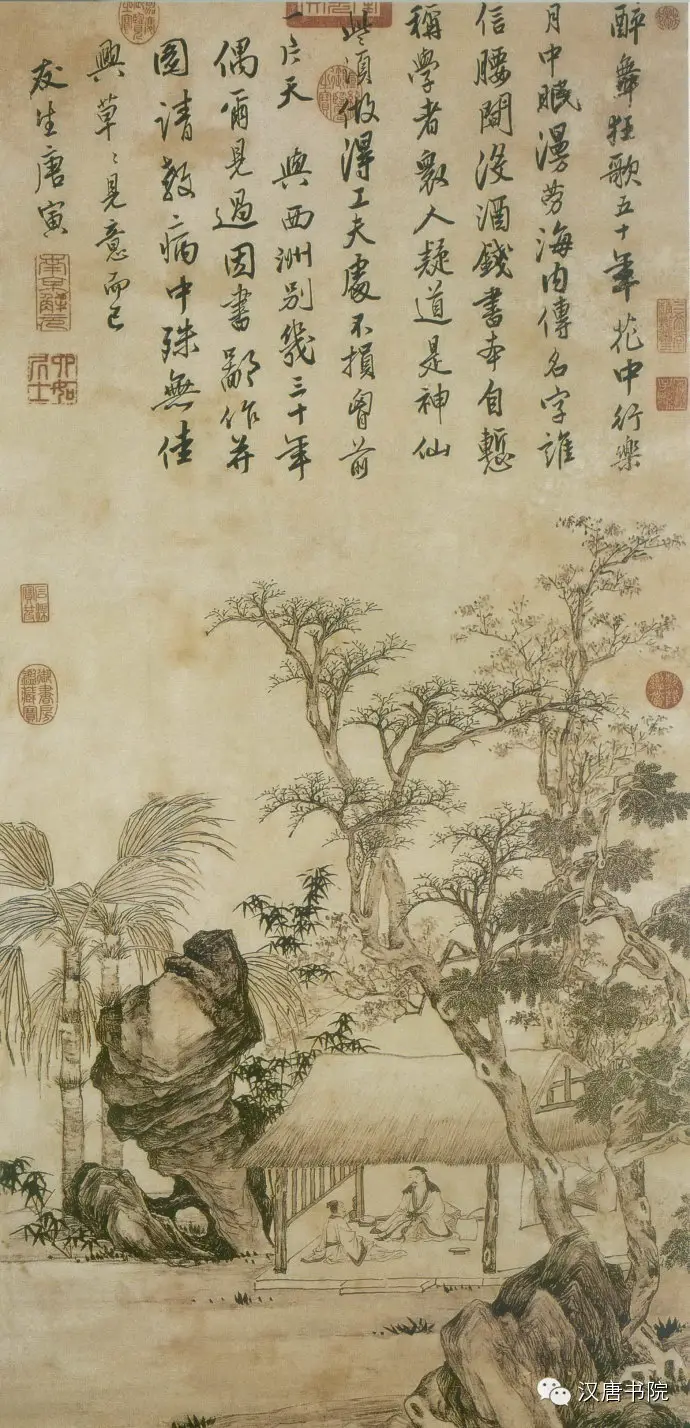 醉舞狂歌五十年花中行樂
月中眠漫勞海内傳名字誰
信腰間沒酒錢書本自慙
稱學者衆人疑道是神仙
些須做得工夫處不損胷前
一片天 與西洲別幾三十年
偶爾見過因書鄙作并
圖請教病中殊無佳
興草〻見意而已
友生唐寅
南京解元
六如居士
御書房鑑藏寶
汉唐书院